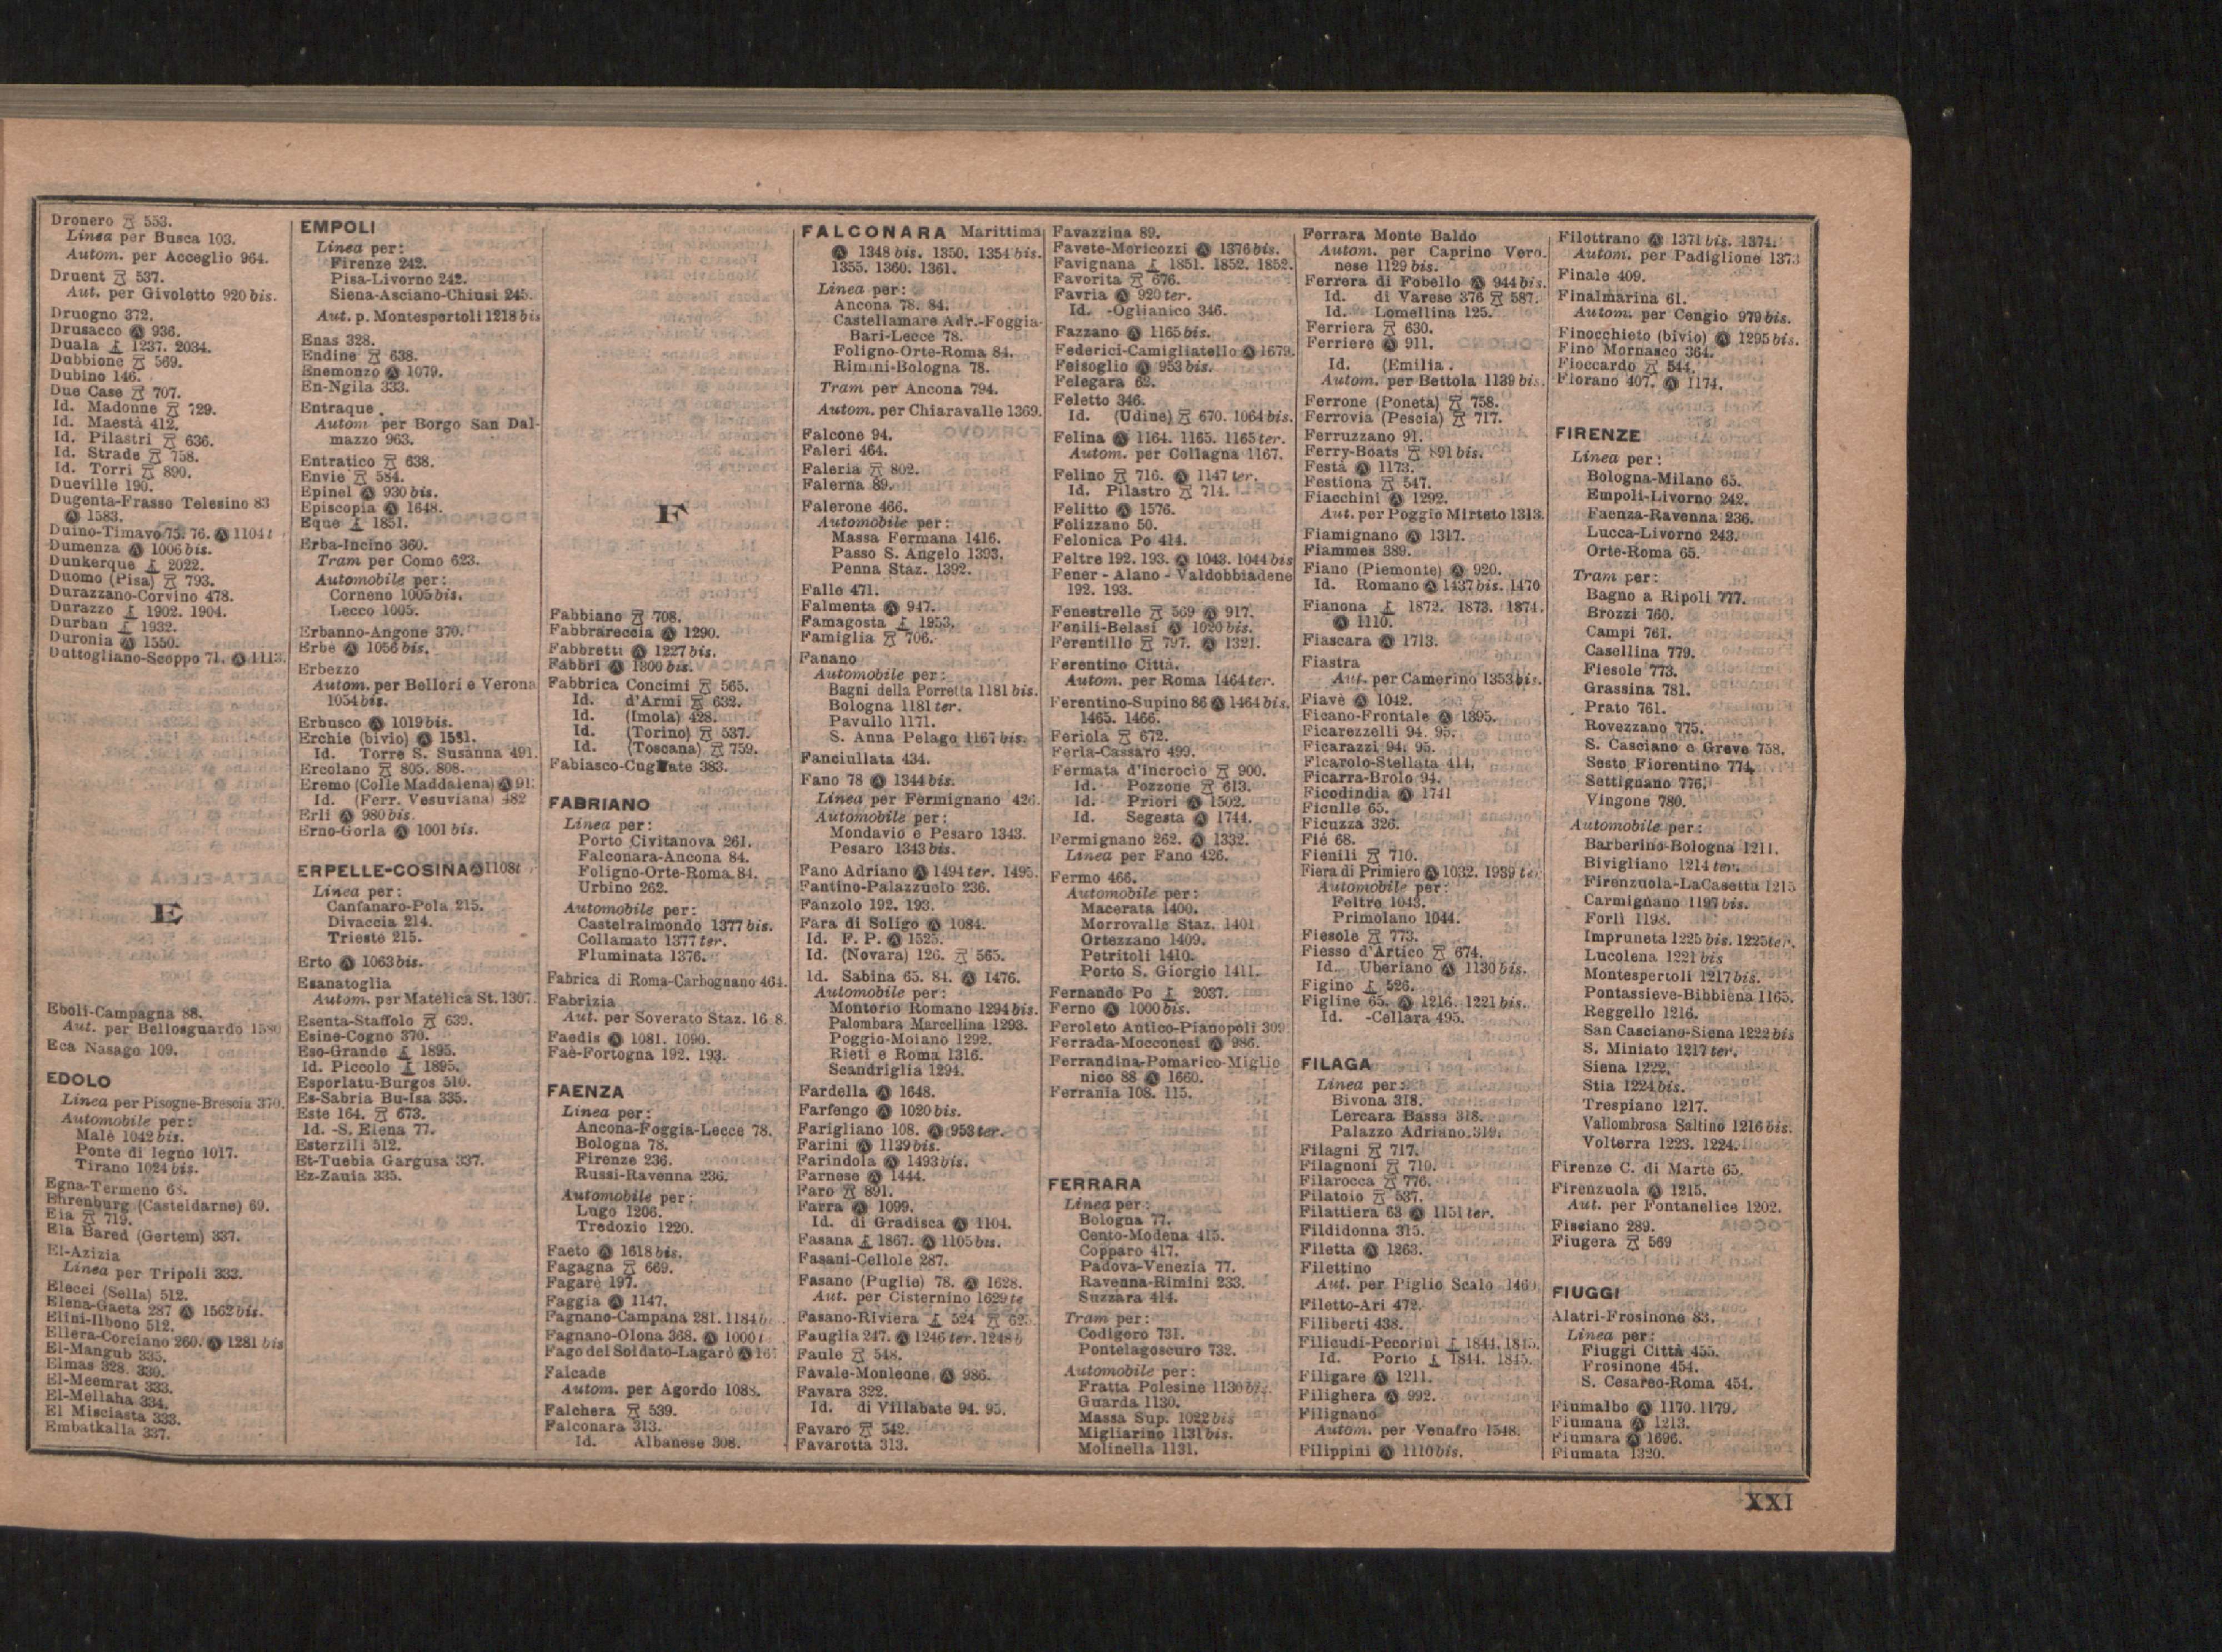 Dronero 553.
Linea per Busca 103.
Autom. per Acceglio 964.
Druent 537.
Aut. per Givoletto 920 bis.
Druogno 372.
Drusacco Ⓐ 936.
Duala 1237. 2034.
Dubbione 569.
Dubino 146.
Due Case 707.
Id. Madonne 729.
Id. Maestà 412.
Id. Pilastri 636.
Id. Strade 758.
Id. Torri 890.
Dueville 190.
Dugenta-Frasso Telesino 83
Ⓐ 1583.
Duino-Timavo 75. 76. Ⓐ 1104
Dumenza Ⓐ 1006 bis.
Dunkerque 2022.
Duomo (Pisa) 793.
Durazzano-Corvino 478.
Durazzo 1902. 1904.
Durban 1932.
Duronia Ⓐ 1550.
Duttogliano-Scoppo 71. Ⓐ
E
Eboli-Campagna 88.
Aut. per Bellosguardo
Eca Nasago 109.
EDOLO
Linea per Pisogne-Brescia 370.
Automobile per:
Malè 1042 bis.
Ponte di legno 1017.
Tirano 1024 bis.
Egna-Termeno
Ehrenburg (Casteldarne) 69.
Eia 719.
Ela Bared (Gertem) 337.
El-Azizia
Linea per Tripoli 333.
Elecci (Sella) 512.
Elena-Gaeta 287 Ⓐ 1562 bis.
Elini-Ilbono 512.
Ellera-Corciano 260. Ⓐ 1281 bis
El-Mangub 335.
Elmas 328. 330.
El-Meemrat 333.
El-Mellaha 334.
El Misciasta 333.
Embatkalla 337.
EMPOLI
Linea per:
Firenze 242.
Pisa-Livorno 242.
Siena-Asciano-Chiusi 245.
Aut. p. Montespertoli 1218 bis
Enas 328.
Endine 638.
Enemonzo Ⓐ 1079.
En-Ngila 333.
Entraque
Autom per Borgo San Dal-
mazzo 963.
Entratico 638.
Envie 584.
Epinel Ⓐ 930 bis.
Episcopia Ⓐ 1648.
Eque 1851.
Erba-Incino 360.
Tram per Como 623.
Automobile per:
Corneno 1005 bis.
Lecco 1005.
Erbanno-Angone 370.
Erbè Ⓐ 1056 bis.
Erbezzo
Autom. per Bellori e Verona
1054 bis.
Erbusco Ⓐ 1019 bis.
Erchie (bivio) Ⓐ 1581.
Id. Torre S. Susanna 491.
Ercolano 805. 808.
Eremo (Colle Maddalena) Ⓐ
Id. (Ferr. Vesuviana) 482
Erli Ⓐ 980 bis.
Erno-Gorla Ⓐ 1001 bis.
ERPELLE-COSINA Ⓐ 1108t
Linea per:
Canfanaro-Pola 215.
Divaccia 214.
Trieste 215.
Erto Ⓐ 1063 bis.
Esanatoglia
Autom. per Matelica St. 1307.
Esenta-Staffolo 639.
Esine-Cogno 370.
Eso-Grande 1895.
Id. Piccolo 1895.
Esporlatu-Burgos 510.
Es-Sabria Bu-Isa 335.
Este 164. 673.
Id. -S. Elena 77.
Esterzili 512.
Et-Tuebia Gargusa 337.
Ez-Zauia 335.
F
Fabbiano 708.
Fabbrareccia Ⓐ 1290.
Fabbretti Ⓐ 1227 bis.
Fabbri Ⓐ 1300 bis.
Fabbrica Concimi 565.
Id. d'Armi 632.
Id. (Imola) 428.
Id. (Torino) 537.
Id. (Toscana) 759.
Fabiasco-Cugliate 383.
FABRIANO
Linea per:
Porto Civitanova 261.
Falconara-Ancona 84.
Foligno-Orte-Roma 84.
Urbino 262.
Automobile per:
Castelraimondo 1377 bis.
Collamato 1377 ter.
Fluminata 1376.
Fabrica di Roma-Carbognano 464.
Fabrizia
Aut. per Soverato Staz.
Faedis Ⓐ 1081. 1090.
Faè-Fortogna 192. 193.
FAENZA
Linea per:
Ancona-Foggia-Lecce 78.
Bologna 78.
Firenze 236.
Russi-Ravenna 236.
Automobile per:
Lugo 1206.
Tredozio 1220.
Faeto Ⓐ 1618 bis.
Fagagna 669.
Fagarè 197.
Faggia Ⓐ 1147.
Fagnano-Campana 281. 1184 b
Fagnano-Olona 368. Ⓐ 1000 t
Fago del Soldato-Lagarò Ⓐ
Falcade
Autom. per Agordo 1088.
Falchera 539.
Falconara 313.
Id. Albanese 308.
FALCONARA Marittima
Ⓐ 1348 bis. 1350. 1354 bis.
1355. 1360. 1361.
Linea per:
Ancona 78. 84.
Castellamare Adr.-Foggia-
Bari-Lecce 78.
Foligno-Orte-Roma 84.
Rimini-Bologna 78.
Tram per Ancona 794.
Autom. per Chiaravalle 1369.
Falcone 94.
Faleri 464.
Faleria 802.
Falerna 89.
Falerone 466.
Automobile per:
Massa Fermana 1416.
Passo S. Angelo 1393.
Penna Staz. 1392.
Falle 471.
Falmenta Ⓐ 947.
Famagosta 1953.
Famiglia 706.
Fanano
Automobile per:
Bagni della Porretta 1181 bis.
Bologna 1181 ter.
Pavullo 1171.
S. Anna Pelago 1167 bis.
Fanciullata 434.
Fano 78 Ⓐ 1344 bis.
Linea per Fermignano 426.
Automobile per:
Mondavio e Pesaro 1343.
Pesaro 1343 bis.
Fano Adriano Ⓐ 1494 ter. 1495.
Fantino-Palazzuolo 236.
Fanzolo 192. 193.
Fara di Soligo Ⓐ 1084.
Id. F. P. Ⓐ 1525.
Id. (Novara) 126. 565.
Id. Sabina 65. 84. Ⓐ 1476.
Automobile per:
Montorio Romano 1294 bis.
Palombara Marcellina 1293.
Poggio-Moiano 1292.
Rieti e Roma 1316.
Scandriglia 1294.
Fardella Ⓐ 1648.
Farfengo Ⓐ 1020 bis.
Farigliano 108. Ⓐ 953 ter.
Farini Ⓐ 1139 bis.
Farindola Ⓐ 1493 bis.
Farnese Ⓐ 1444.
Faro 891.
Farra Ⓐ 1099.
Id. di Gradisca Ⓐ 1104.
Fasana 1867. Ⓐ 1105 bis.
Fasani-Cellole 287.
Fasano (Puglie) 78. Ⓐ 1628.
Aut. per Cisternino 1629 te
Fasano-Riviera 524
Fauglia 247. Ⓐ 1246 ter. 1248 b
Faule 548.
Favale-Monleone Ⓐ 986.
Favara 322.
Id. di Villabate 94. 95.
Favaro 542.
Favarotta 313.
Favazzina 89.
Favete-Moricozzi Ⓐ 1376 bis.
Favignana 1851. 1852. 1852.
Favorita 676.
Favria Ⓐ 920 ter.
Id. -Oglianico 346.
Fazzano Ⓐ 1165 bis.
Federici-Camigliatello Ⓐ 1679.
Feisoglio Ⓐ 953 bis.
Felegara 62.
Feletto 346.
Id. (Udine) 670. 1064 bis.
Felina Ⓐ 1164. 1165. 1165 ter.
Autom. per Collagna 1167.
Felino 716. Ⓐ 1147 ter.
Id. Pilastro 714.
Felitto Ⓐ 1576.
Felizzano 50.
Felonica Po 414.
Feltre 192. 193. Ⓐ 1043. 1044 bis
Fener - Alano - Valdobbiadene
192. 193.
Fenestrelle 569 Ⓐ 917.
Fenili-Belasi Ⓐ 1020 bis.
Ferentillo 797. Ⓐ 1321.
Ferentino Città.
Autom. per Roma 1464 ter.
Ferentino-Supino 86 Ⓐ 1464 bis.
1465. 1466.
Feriola 672.
Ferla-Cassaro 499.
Fermata d'Incrocio 900.
Id. Pozzone 613.
Id. Priori Ⓐ 1502.
Id. Segesta Ⓐ 1744.
Fermignano 262. Ⓐ 1332.
Linea per Fano 426.
Fermo 466.
Automobile per:
Macerata 1400.
Morrovalle Staz. 1401
Ortezzano 1409.
Petritoli 1410.
Porto S. Giorgio 1411.
Fernando Po 2037.
Ferno Ⓐ 1000 bis.
Feroleto Antico-Pianopoli 309
Ferrada-Mocconesi Ⓐ 986.
Ferrandina-Pomarico-Miglio
nico 88 Ⓐ 1660.
Ferrania 108. 115.
FERRARA
Linea per:
Bologna 77.
Cento-Modena 415.
Copparo 417.
Padova-Venezia 77.
Ravenna-Rimini 233.
Suzzara 414.
Tram per:
Codigoro 731.
Pontelagoscuro 732.
Automobile per:
Fratta Polesine 1130
Guarda 1130.
Massa Sup. 1022 bis
Migliarino 1131 bis.
Molinella 1131.
Ferrara Monte Baldo
Autom. per Caprino Vero-
nese 1129 bis.
Ferrera di Fobello Ⓐ 944 bis.
Id. di Varese 376 587.
Id. Lomellina 125.
Ferriera 630.
Ferriere Ⓐ 911.
Id. (Emilia.
Autom. per Bettola 1139 bis.
Ferrone (Poneta) 758.
Ferrovia (Pescia) 717.
Ferruzzano 91.
Ferry-Boats 891 bis.
Festà Ⓐ 1173.
Festiona 547.
Fiacchini Ⓐ 1292.
Aut. per Poggio Mirteto 1313.
Fiamignano Ⓐ 1317.
Fiammes 389.
Fiano (Piemonte) Ⓐ 920.
Id. Romano Ⓐ 1437 bis. 1470
Fianona 1872. 1873. 1874.
Ⓐ 1110.
Fiascara Ⓐ 1713.
Fiastra
Aut. per Camerino 1353 bis.
Fiavè Ⓐ 1042.
Ficano-Frontale Ⓐ 1395.
Ficarezzelli 94. 95.
Ficarazzi 94. 95.
Ficarolo-Stellata 414.
Ficarra-Brolo 94.
Ficodindia Ⓐ 1741
Ficulle 65.
Ficuzza 326.
Fié 68.
Fienili 710.
Fiera di Primiero Ⓐ 1032. 1939
Automobile per:
Feltre 1043.
Primolano 1044.
Fiesole 773.
Fiesso d'Artico 674.
Id. Uberiano Ⓐ 1130 bis.
Figino 526.
Figline 65. Ⓐ 1216. 1221 bis.
Id. -Cellara 495.
FILAGA
Linea per:
Bivona 318.
Lercara Bassa 318.
Palazzo Adriano 319.
Filagni 717.
Filagnoni 710.
Filarocca 776.
Filatoio 537.
Filattiera 63 Ⓐ 1151 ter.
Fildidonna 315.
Filetta Ⓐ 1263.
Filettino
Aut. per Piglio Scalo
Filetto-Ari 472.
Filiberti 438.
Filicudi-Pecorini 1844. 1845.
Id. Porto 1844. 1845.
Filigare Ⓐ 1211.
Filighera Ⓐ 992.
Filignano
Autom. per Venafro 1548.
Filippini Ⓐ 1110 bis.
Filottrano Ⓐ 1371 bis. 1374.
Autom. per Padiglione 1373
Finale 409.
Finalmarina 61.
Autom. per Cengio 979 bis.
Finocchieto (bivio) Ⓐ 1295 bis.
Fino Mornasco 364.
Fioccardo 544.
Fiorano 407. Ⓐ 1174.
FIRENZE
Linea per:
Bologna-Milano 65.
Empoli-Livorno 242.
Faenza-Ravenna 236.
Lucca-Livorno 243.
Orte-Roma 65.
Tram per:
Bagno a Ripoli 777.
Brozzi 760.
Campi 761.
Casellina 779.
Fiesole 773.
Grassina 781.
Prato 761.
Rovezzano 775.
S. Casciano e Greve 758.
Sesto Fiorentino 774.
Settignano 776.
Vingone 780.
Automobile per:
Barberino-Bologna 1211.
Bivigliano 1214 ter.
Firenzuola-LaCasetta 1215
Carmignano 1197 bis.
Forlì 1198.
Impruneta 1225 bis. 1225 ter.
Lucolena 1221 bis
Montespertoli 1217 bis.
Pontassieve-Bibbiena 1165.
Reggello 1216.
San Casciano-Siena 1222 bis
S. Miniato 1217 ter.
Siena 1222.
Stia 1224 bis.
Trespiano 1217.
Vallombrosa Saltino 1216 bis.
Volterra 1223. 1224.
Firenze C. di Marte 65.
Firenzuola Ⓐ 1215.
Aut. per Fontanelice 1202.
Fisciano 289.
Fiugera 569
FIUGGI
Alatri-Frosinone 83.
Linea per:
Fiuggi Città 455.
Frosinone 454.
S. Cesareo-Roma 454.
Fiumalbo Ⓐ 1170. 1179.
Fiumana Ⓐ 1213.
Fiumara Ⓐ 1696.
Fiumata 1320.
XXI